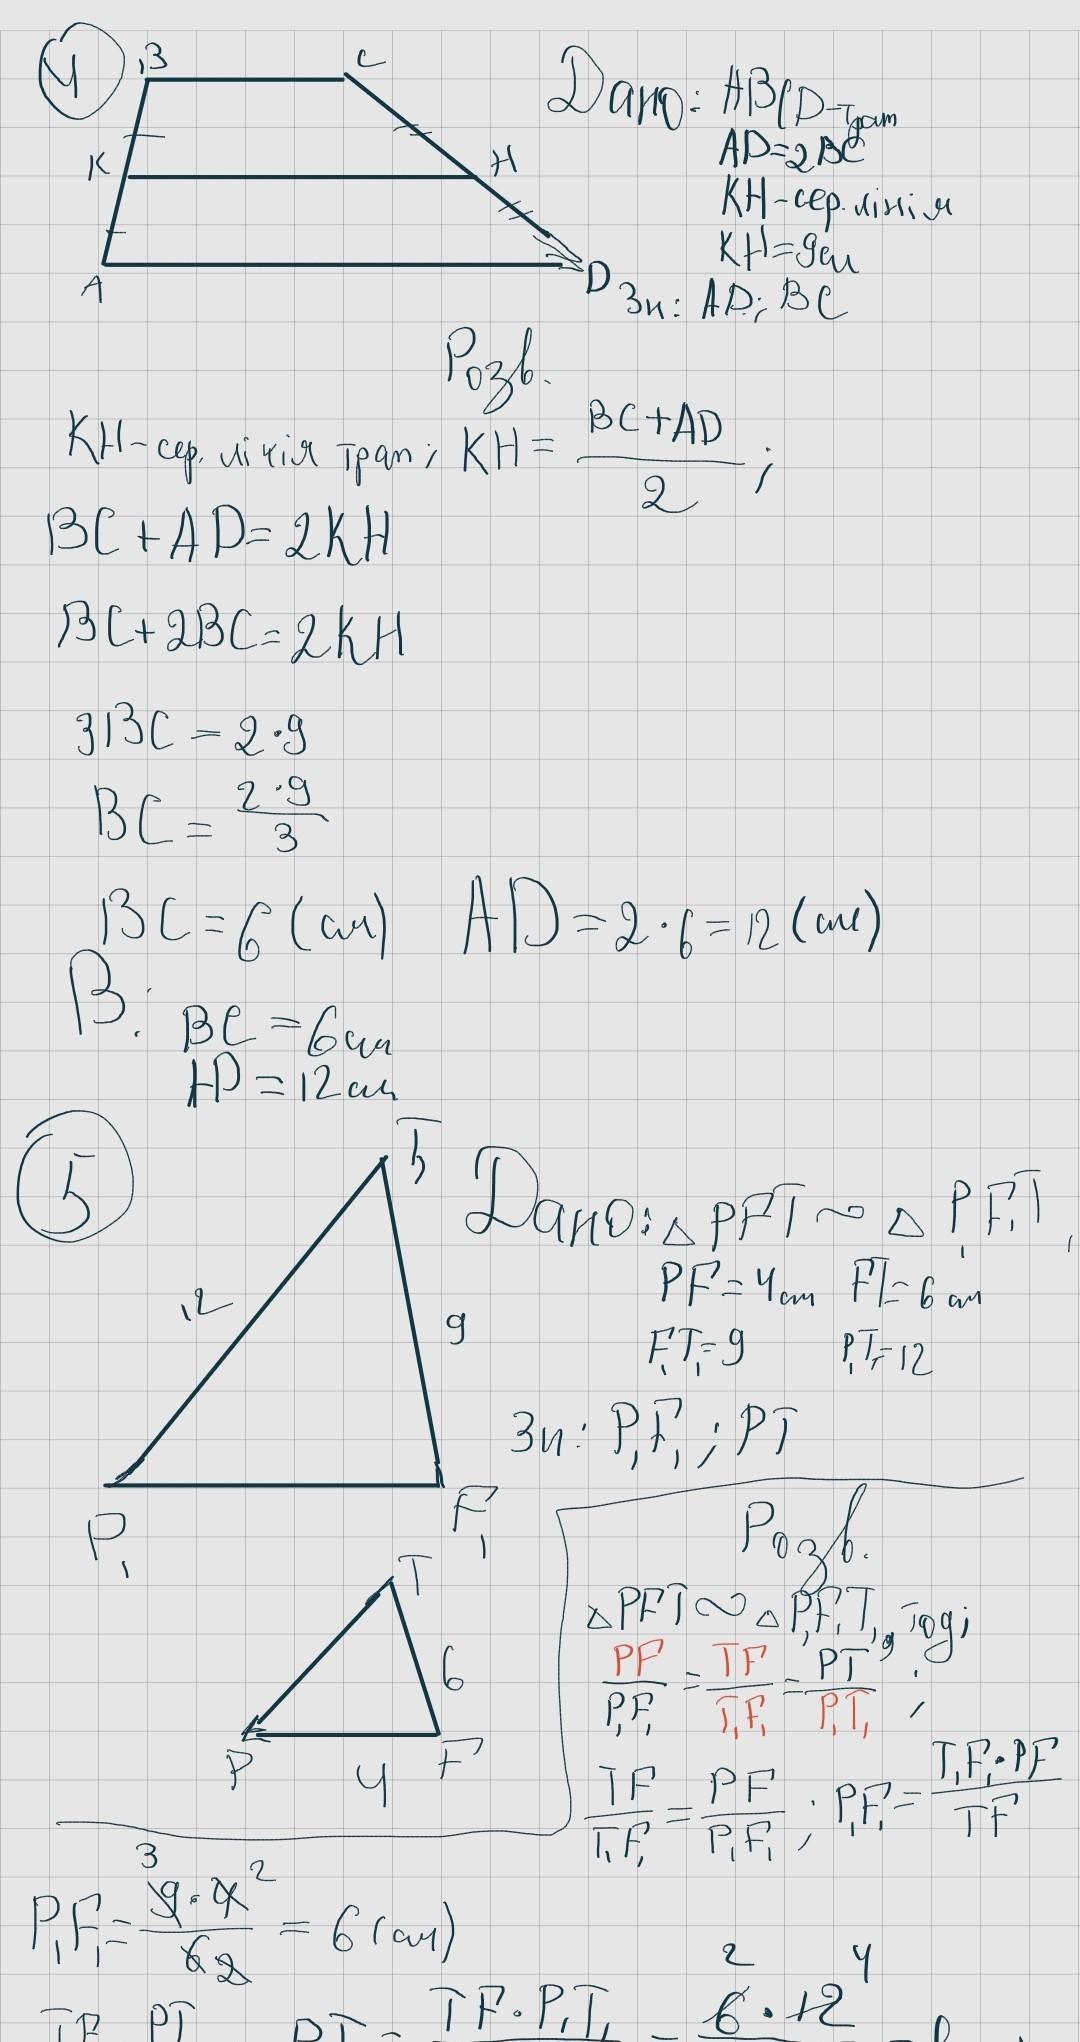 4
B C
K H
A D
Дано: ABCD-трап
AD=2BC
KH-сер. лінія
KH=9см
Зн: AD; BC
Розв.
KH-сер. лінія трап; KH = (BC+AD)/2 ;
BC+AD=2KH
BC+2BC=2KH
3BC = 2·9
BC = (2·9)/3
BC=6 (см) AD=2·6=12 (см)
В: BC=6см
AD=12см
5
T₁
12 9
P₁ F₁
Дано: △PFT ~ △P₁F₁T₁
PF=4см FT=6см
F₁T₁=9 P₁T₁=12
Зн: P₁F₁; PT
T
6
P 4 F
Розв.
△PFT ~ △P₁F₁T₁, тоді
PF/P₁F₁ = TF/T₁F₁ = PT/P₁T₁ ;
TF/T₁F₁ = PF/P₁F₁ ; P₁F₁ = (T₁F₁·PF)/TF
3 2
P₁F₁ = (9·4)/6 2 = 6 (см)
2 4
TF PT PT = TF·P₁T₁ = 6·12 =